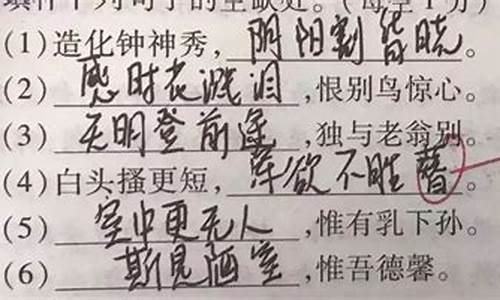 下列句子的空缺处。(每空1分)
(1)造化钟神秀,阴阳割昏晓。
(2)感时花溅泪,恨别鸟惊心。
(3)天明登前途,独与老翁别。
(4)白头搔更短,欲不胜。
(5)室中更无人,惟有乳下孙。
(6)斯是陋室,惟吾德馨。